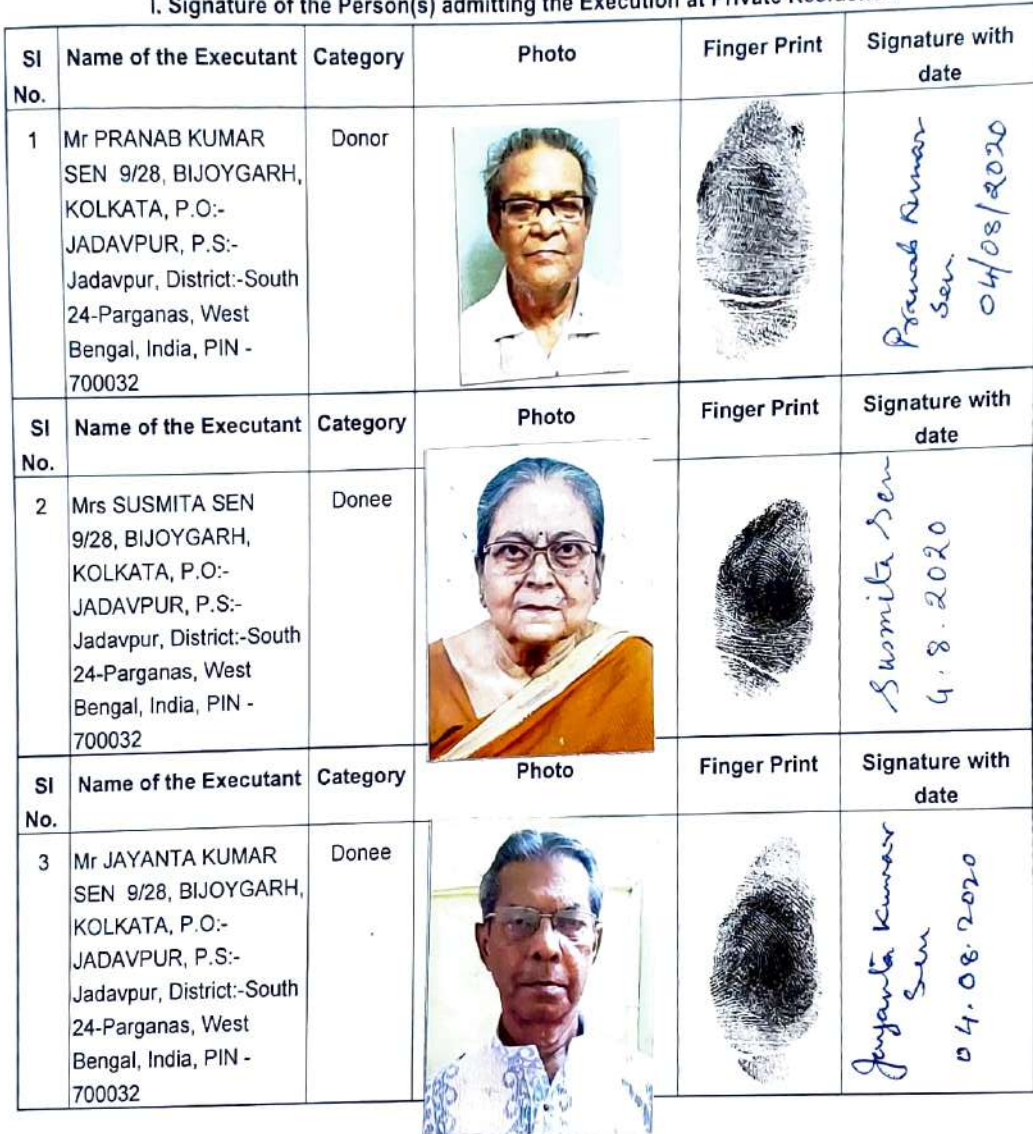 I. Signature of the Person(s) admitting the Execution at Private
SI No. Name of the Executant Category Photo Finger Print Signature with date
1 Mr PRANAB KUMAR Donor
SEN 9/28, BIJOYGARH,
KOLKATA, P.O:-
JADAVPUR, P.S:-
Jadavpur, District:-South
24-Parganas, West
Bengal, India, PIN -
700032
Pranab Kumar
Sen
04/08/2020
SI No. Name of the Executant Category Photo Finger Print Signature with date
2 Mrs SUSMITA SEN Donee
9/28, BIJOYGARH,
KOLKATA, P.O:-
JADAVPUR, P.S:-
Jadavpur, District:-South
24-Parganas, West
Bengal, India, PIN -
700032
Susmita Sen
4.8.2020
SI No. Name of the Executant Category Photo Finger Print Signature with date
3 Mr JAYANTA KUMAR Donee
SEN 9/28, BIJOYGARH,
KOLKATA, P.O:-
JADAVPUR, P.S:-
Jadavpur, District:-South
24-Parganas, West
Bengal, India, PIN -
700032
Jayanta Kumar
Sen
04.08.2020